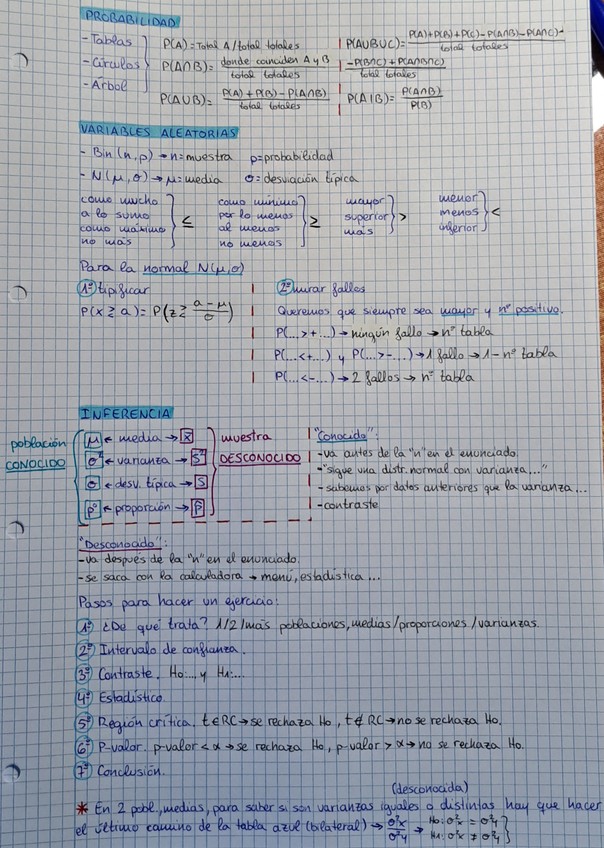 PROBABILIDAD
- Tablas
- Círculos
- Árbol
P(A) = Total A / total totales
P(A∩B) = donde coinciden A y B / total totales
P(A∪B) = P(A) + P(B) - P(A∩B) / total totales
P(A∪B∪C) = P(A) + P(B) + P(C) - P(A∩B) - P(A∩C) - / total totales
- P(B∩C) + P(A∩B∩C) / total totales
P(A|B) = P(A∩B) / P(B)
VARIABLES ALEATORIAS
- Bin (n,p) → n = muestra p = probabilidad
- N(μ,σ) → μ = media σ = desviación típica
como mucho
a lo sumo
como máximo
no más
≤
como mínimo
por lo menos
al menos
no menos
≥
mayor
superior
más
>
menor
menos
inferior
<
Para la normal N(μ,σ)
1º tipificar
P(x ≥ a) = P(z ≥ a-μ / σ)
2º mirar fallos
Queremos que siempre sea mayor y nº positivo.
P(... > + ...) → ningún fallo → nº tabla
P(... < + ...) y P(... > - ...) → 1 fallo → 1 - nº tabla
P(... < - ...) → 2 fallos → nº tabla
INFERENCIA
población
CONOCIDO
μ ← media → x̄
σ² ← varianza → S²
σ ← desv. típica → S
p ← proporción → p̂
muestra
DESCONOCIDO
"Conocido":
- va antes de la "n" en el enunciado.
- "sigue una distr. normal con varianza..."
- sabemos por datos anteriores que la varianza...
- contraste
"Desconocido":
- va después de la "n" en el enunciado.
- se saca con la calculadora → menú, estadística...
Pasos para hacer un ejercicio:
1º ¿De qué trata? 1/2/más poblaciones, medias/proporciones/varianzas
2º Intervalo de confianza.
3º Contraste. Ho:... y H1:...
4º Estadístico.
5º Región crítica. t ∈ RC → se rechaza Ho, t ∉ RC → no se rechaza Ho.
6º P-valor. p-valor < α → se rechaza Ho, p-valor > α → no se rechaza Ho.
7º Conclusión.
(desconocida)
* En 2 pobl., medias, para saber si son varianzas iguales o distintas hay que hacer
el último camino de la tabla azul (bilateral) → σ²x / σ²y → Ho: σ²x = σ²y
H1: σ²x ≠ σ²y